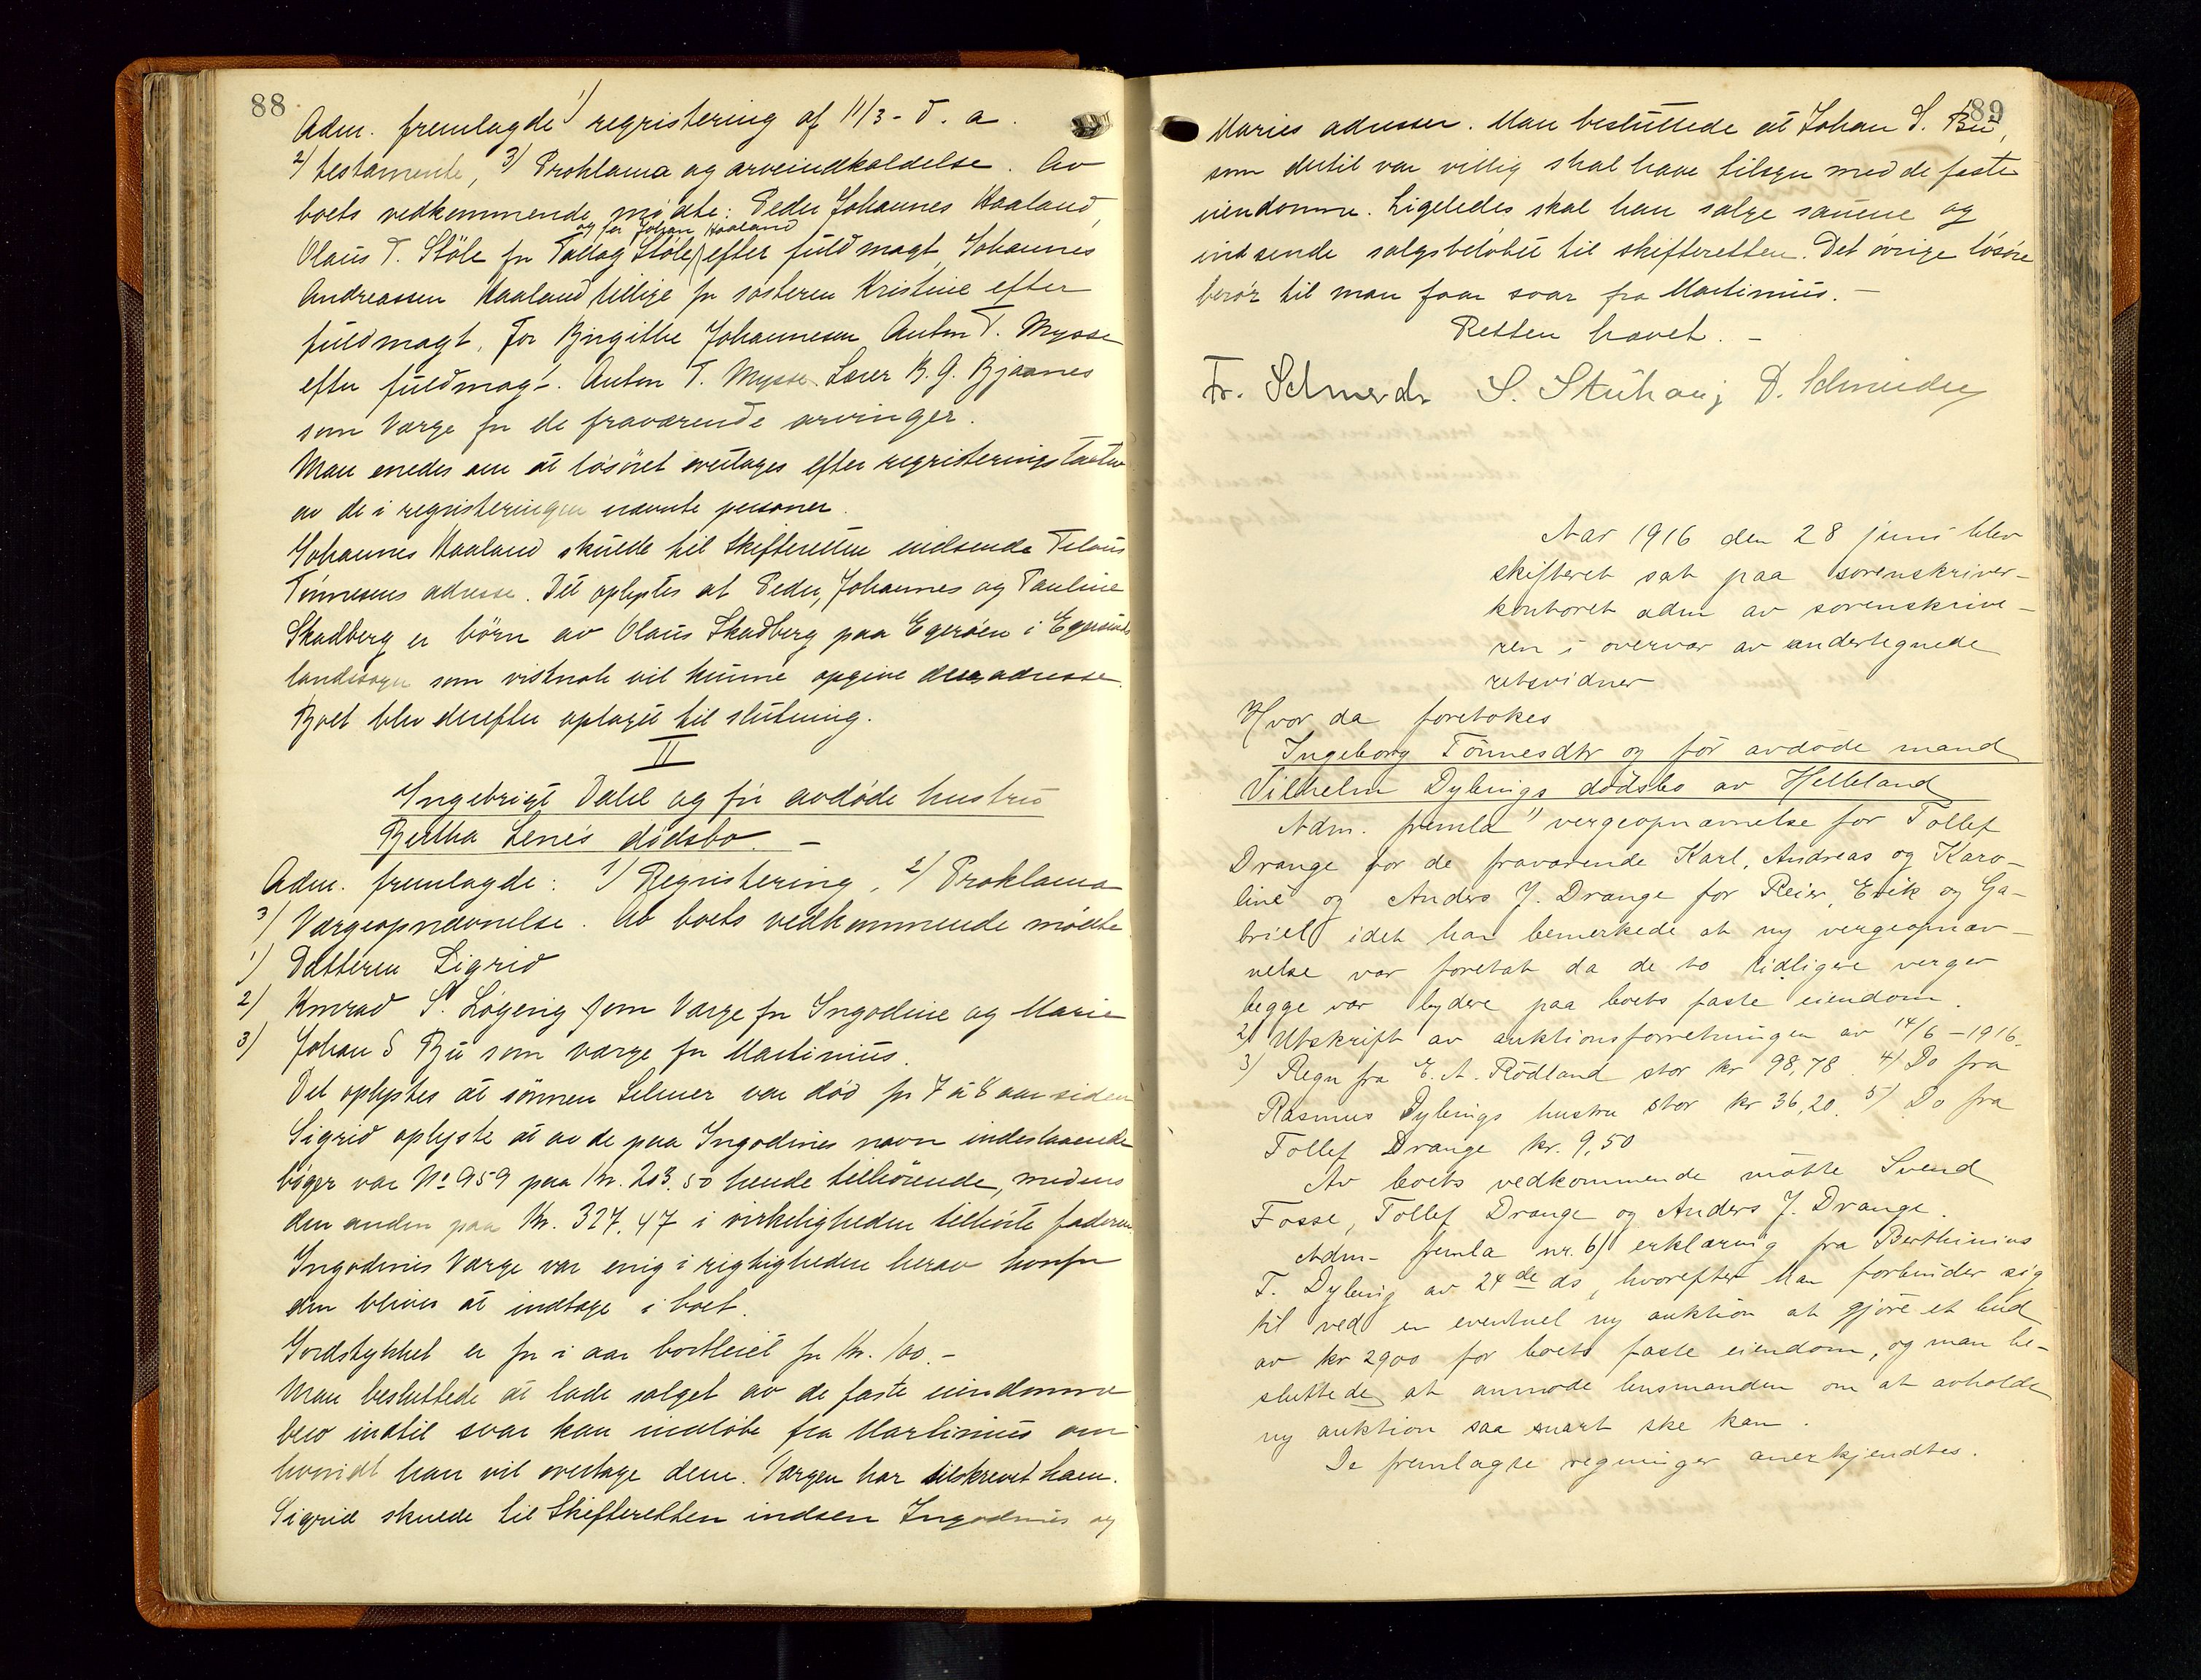 88
Adm. fremlagde 1) registering af 11/3 - d. a.
2) testamente, 3) Proklama og arveindkaldelse. Av
boets vedkommende mødte: Peder Johannes Haaland,
og for Johan Haaland
Olaus T. Støle for Tallag Støle efter fuldmagt, Johannes
Andreassen Haaland tillige for søsteren Kristine efter
fuldmagt, for Birgithe Johannesen Anton T. Mysse
efter fuldmagt. Anton T. Mysse. Lærer B. G. Bjaanes
som Værge for de fraværende arvinger.
Man enedes om at løsøret overtages efter registeringstaxten
av de i registeringen nævnte personer.
Johannes Haaland skulde til Skifteretten indsende Telaus
Tønnesens adresse. Det oplystes at Peder, Johannes og Pauline
Skadberg er børn av Olaus Skadberg paa Egerøen i Egersunds
landsogn som vistnok vil kunne opgive deres adresse.
Boet blev derefter optaget til slutning.
II
Ingebrigt Dahl og før avdøde hustru
Bertha Lene's dødsbo. -
Adm. fremlagde: 1) Registering, 2) Proklama
3) Værgeopnævnelse. Av boets vedkommende mødte
1) Datteren Sigrid
2) Konrad S. Løgeng som Værge for Ingodine og Marie
3) Johan S Bu som værge for Martinius.
Det oplystes at sønnen Selmer var død for 7 à 8 aar siden
Sigrid oplyste at av de paa Ingodines navn indestaaende
bøger var No 959 paa Kr. 203.50 hende tilhørende, medens
den anden paa Kr. 327.47 i virkeligheden tilhørte faderen
Ingodines Værge var enig i rigtigheden herav hvorfor
den bliver at indtage i boet.
Jordstykket er for i aar bortleiet for Kr. 100.-
Man besluttede at lade salget av de faste eiendomme
bero indtil svar kan indløbe fra Martinius om
hvorvidt han vil overtage dem. Værgen har tilskrevet ham.
Sigrid skulde til Skifteretten indsen Ingodines og
89
Maries adresser. Man besluttede at Johan S. Bu,
som dertil var villig skal have tilsyn med de faste
eiendomme. Ligeledes skal han sælge sauene og
indsende salgsbeløbet til skifteretten. Det øvrige løsøre
berør til man faar svar fra Martinius. -
Retten hævet. -
Fr. Schneider S. Stuhaug D. Schneider
Aar 1916 den 28 juni blev
skifteret sat paa sorenskriver-
kontoret adm av sorenskrive-
ren i overvær av undertegnede
retsvidner
Hvor da foretokes
Ingeborg Tønnesdtr og før avdøde mand
Vilhelm Dybings dødsbo av Helleland
Adm. fremla 1) vergeopnævnelse for Tollef
Drange for de fraværende Karl, Andreas og Karo-
line og Anders J. Drange for Reier, Erik og Ga-
briel idet han bemerkede at ny vergeopnæv-
nelse var foretat da de to tidligere verger
begge var bydere paa boets faste eiendom.
2) Utskrift av auktionsforretningen av 14/6 - 1916.
3) Regn fra E. A. Rødland stor kr 98,78. 4) Do fra
Rasmus Dybings hustru stor kr 36,20. 5) Do fra
Tollef Drange kr. 9,50
Av boets vedkommende møtte Svend
Fosse, Tollef Drange og Anders J. Drange.
Adm- fremla nr. 6) erklæring fra Berthinius
T. Dybing av 24 de ds, hvorefter han forbinder sig
til ved en eventuel ny auktion at gjøre et bud
av kr 2900 for boets faste eiendom, og man be-
sluttede at anmode lensmanden om at avholde
ny auktion saa snart ske kan.
De fremlagte regninger anerkjendtes.